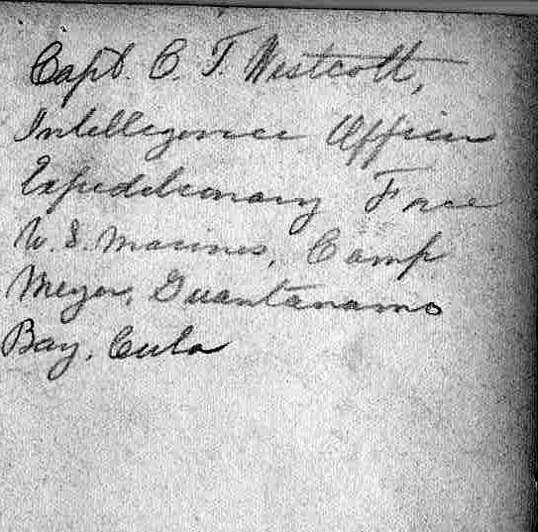 Capt. C. T. Westcott,
Intelligence Officer
Expeditionary Force
U. S. Marines, Camp
Meyer, Guantanamo
Bay, Cuba